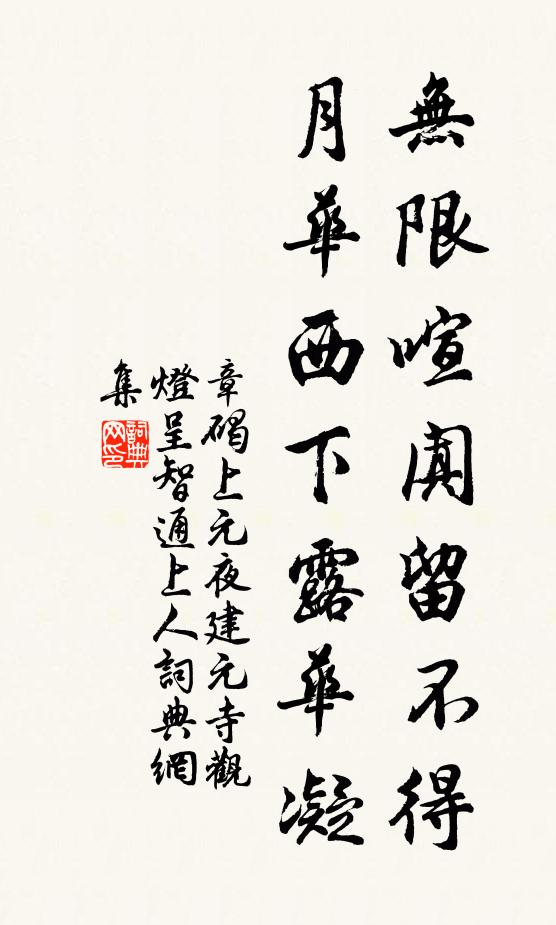 無限喧闐留不得
月華西下露華凝
章碣上元夜建元寺觀
燈呈智通上人詞典網
集
詞典
网印